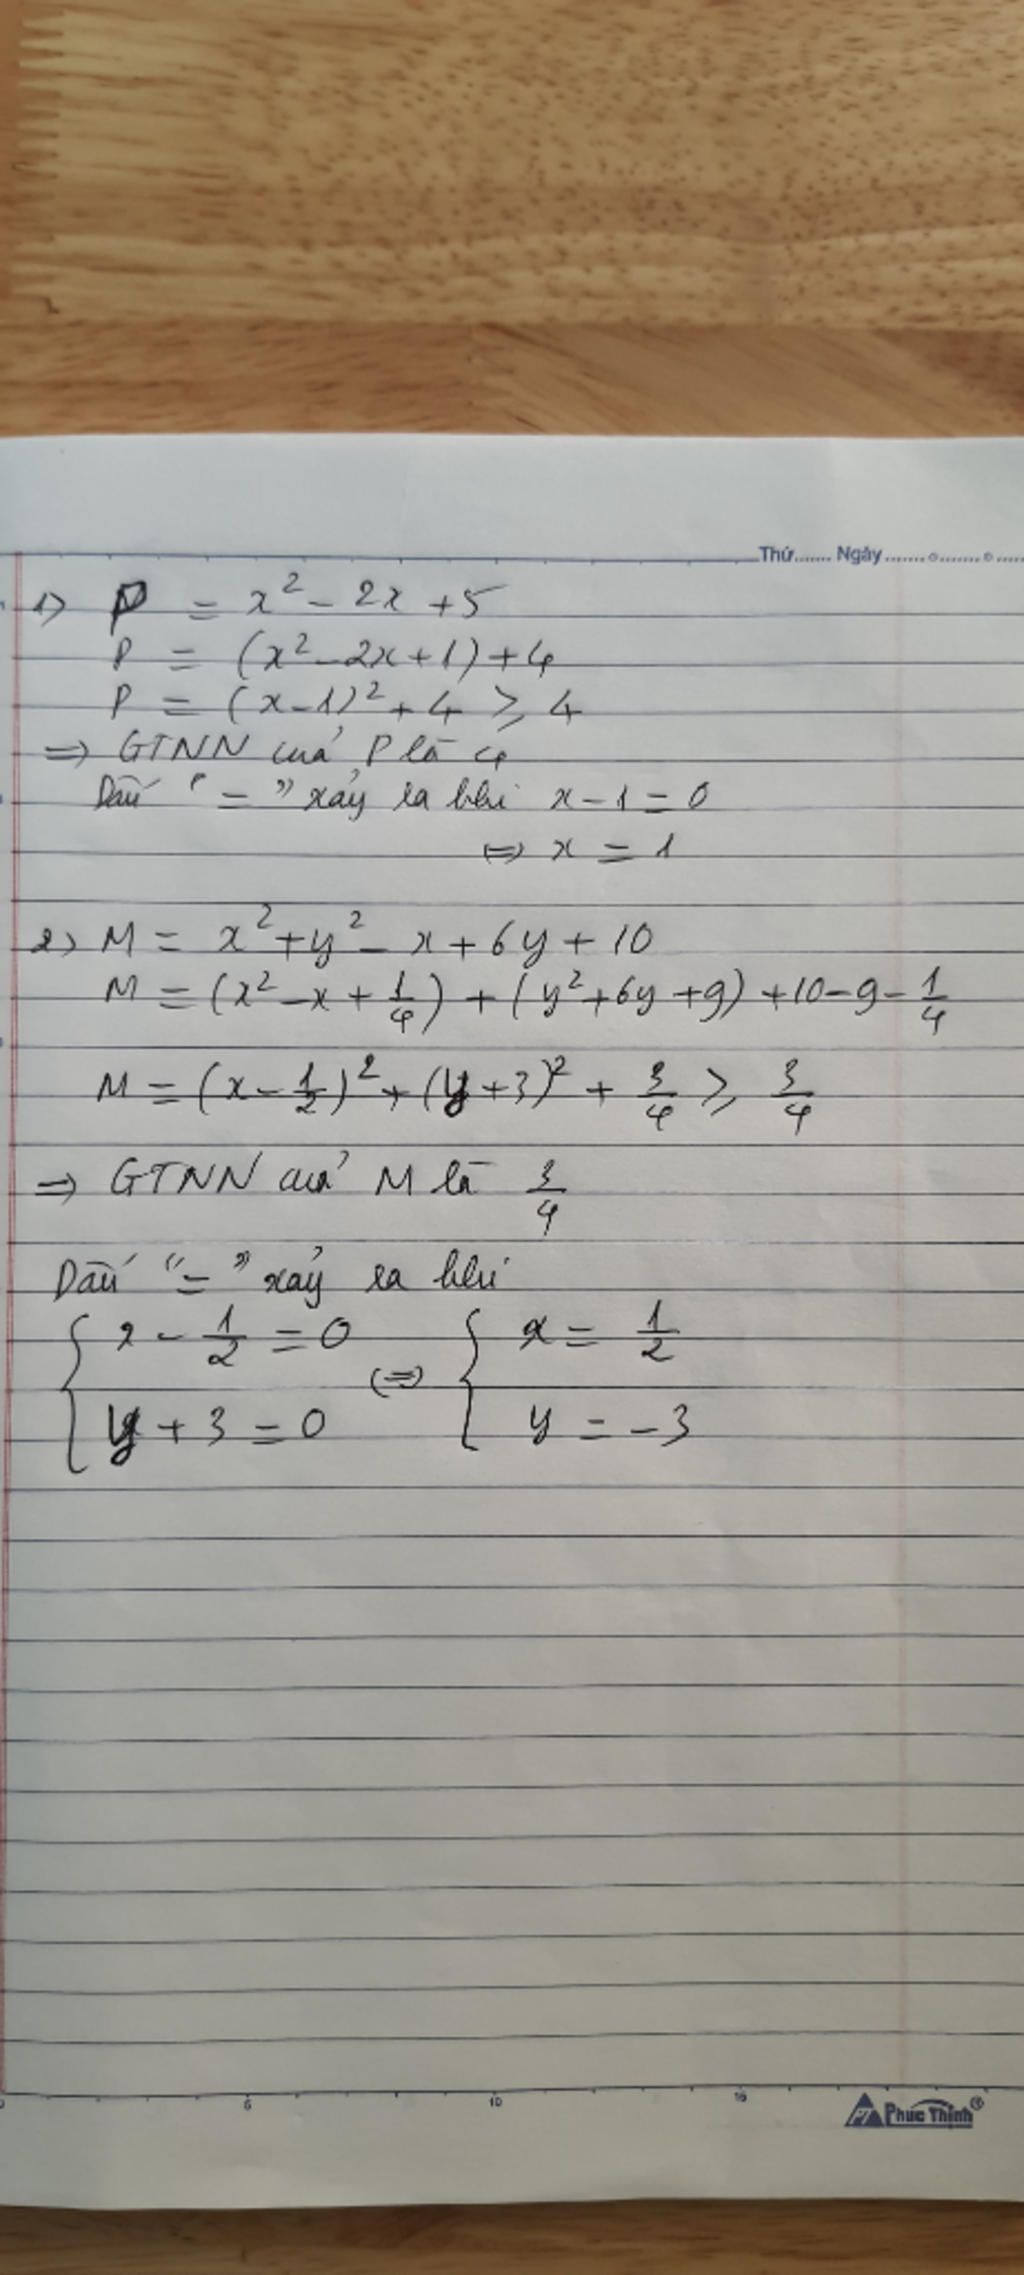 Thứ....... Ngày
1) P = x² - 2x + 5
P = (x² - 2x + 1) + 4
P = (x - 1)² + 4 ⩾ 4
=> GTNN của P là 4
Dấu "=" xảy ra khi x - 1 = 0
<=> x = 1
2) M = x² + y² - x + 6y + 10
M = (x² - x + 1/4) + (y² + 6y + 9) + 10 - 9 - 1/4
M = (x - 1/2)² + (y + 3)² + 3/4 ⩾ 3/4
=> GTNN của M là 3/4
Dấu "=" xảy ra khi
{ x - 1/2 = 0 <=> { x = 1/2
y + 3 = 0 y = -3
5 10 15
PT Phúc Thịnh®